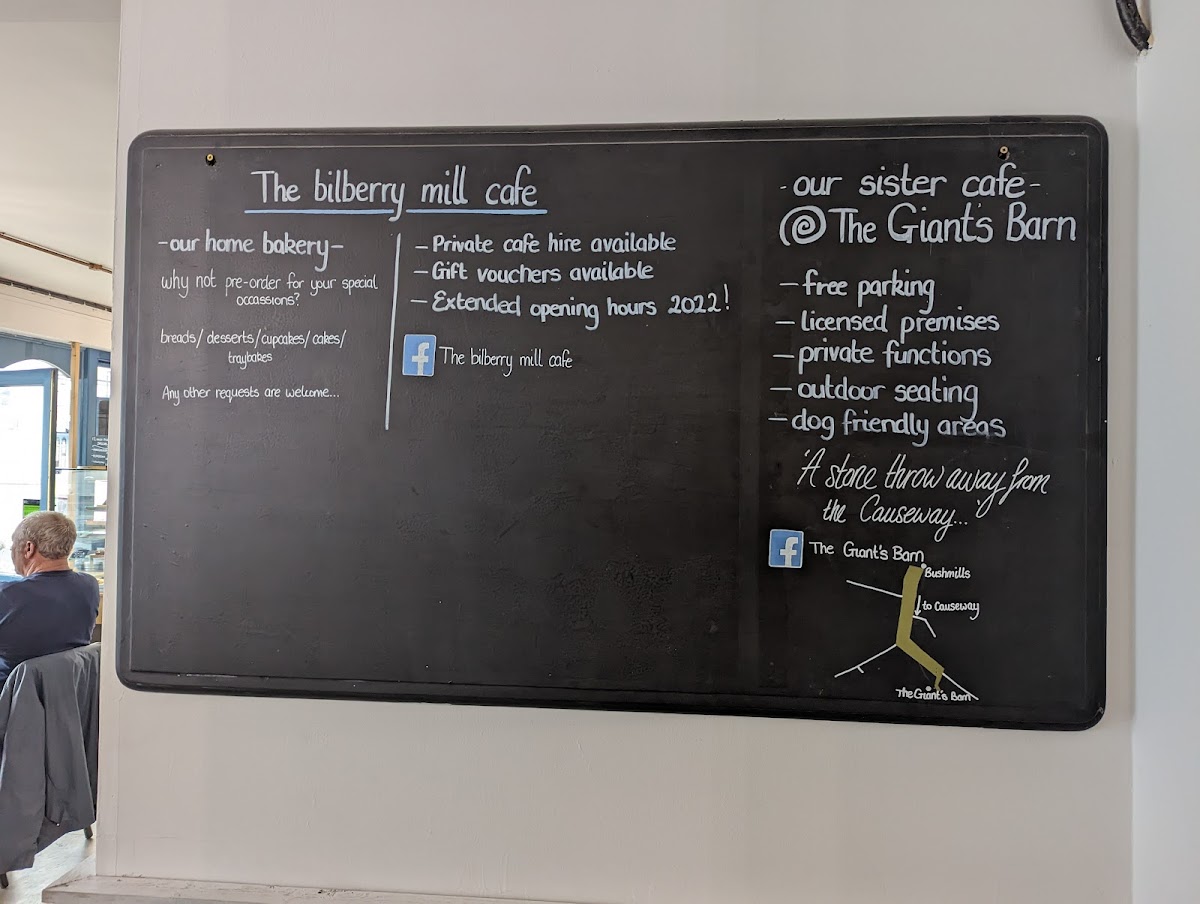 The bilberry mill cafe
-our home bakery-
why not pre-order for your special
occassions?
breads/desserts/cupcakes/cakes/
traybakes
Any other requests are welcome...
- Private cafe hire available
- Gift vouchers available
- Extended opening hours 2022!
f The bilberry mill cafe
-our sister cafe-
@ The Giant's Barn
- free parking
- licensed premises
- private functions
- outdoor seating
- dog friendly areas
'A stone throw away from
the Causeway...'
f The Giant's Barn
Bushmills
to Causeway
The Giant's Barn